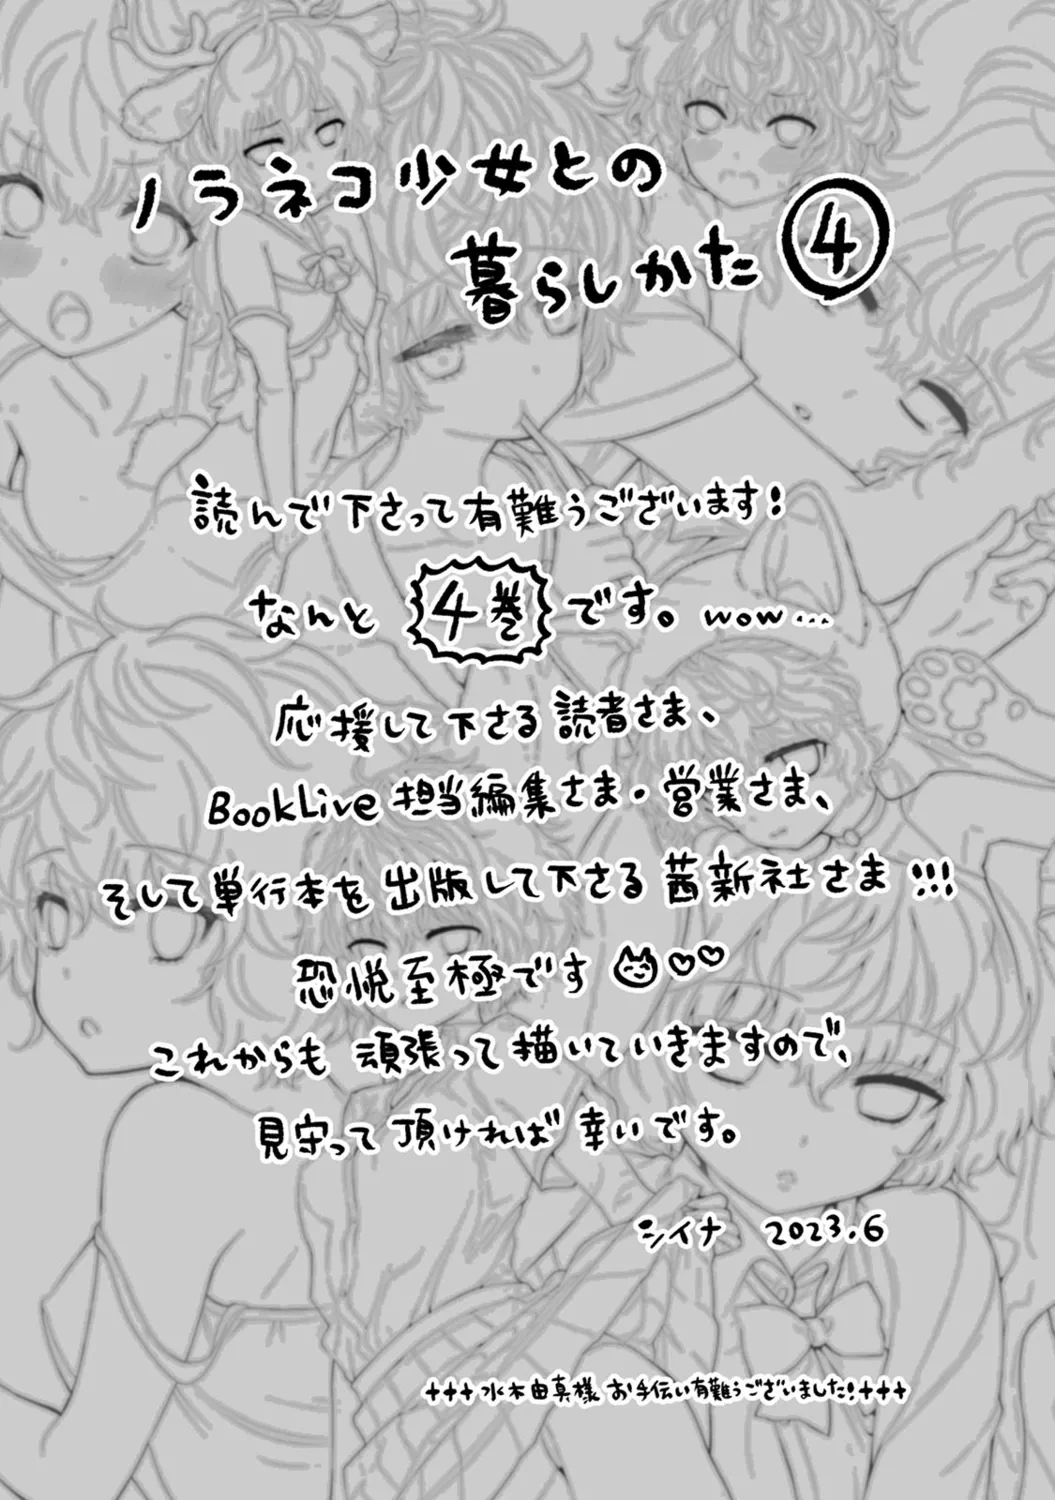 ノラネコ少女との
暮らしかた④
読んで下さって有難うございます!
なんと 4巻 です。wow…
応援して下さる読者さま、
BookLive 担当編集さま・営業さま、
そして単行本を出版して下さる茜新社さま!!!
恐悦至極です ♡♡
これからも 頑張って描いていきますので、
見守って頂ければ幸いです。
シイナ 2023.6
+++水木由真様 お手伝い有難うございました!+++